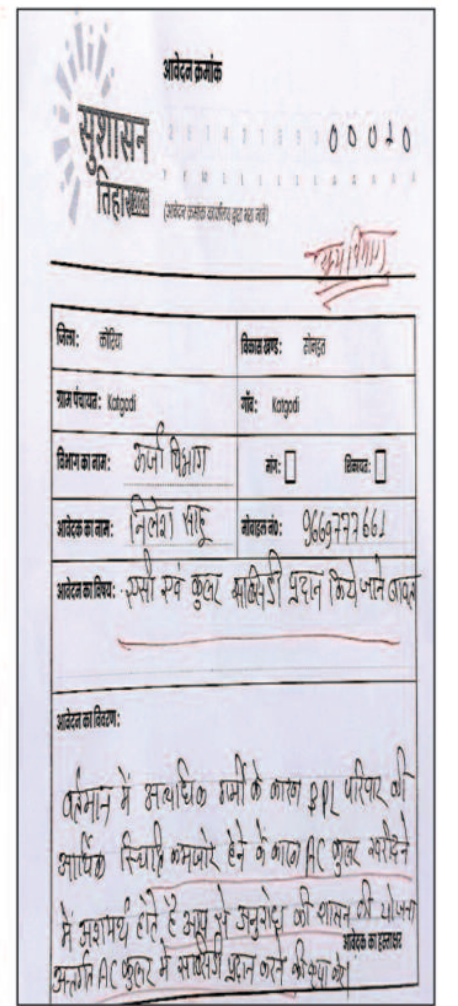 आवेदन क्रमांक
सुशासन
तिहार
00020
(आवेदन क्रमांक कार्यालय द्वारा भरा जावे)
जिला: कोरिया
विकास खण्ड: सोनहत
ग्राम पंचायत: Katgodi
गाँव: Katgodi
विभाग का नाम: ऊर्जा विभाग
मांग:
शिकायत:
आवेदक का नाम: निलेश साहू
मोबाइल नं0: 9669777661
आवेदन का विषय: एसी एवं कुलर सब्सिडी प्रदान किये जाने बावत
आवेदन का विवरण:
वर्तमान में अत्यधिक गर्मी के कारण BPL परिवार की
आर्थिक स्थिति कमजोर होने के कारण AC कुलर खरीदने
में असमर्थ होते है आप से अनुरोध की शासन की योजना
आवेदक का हस्ताक्षर
अंतर्गत AC कुलर में सब्सिडी प्रदान करने की कृपा करें।